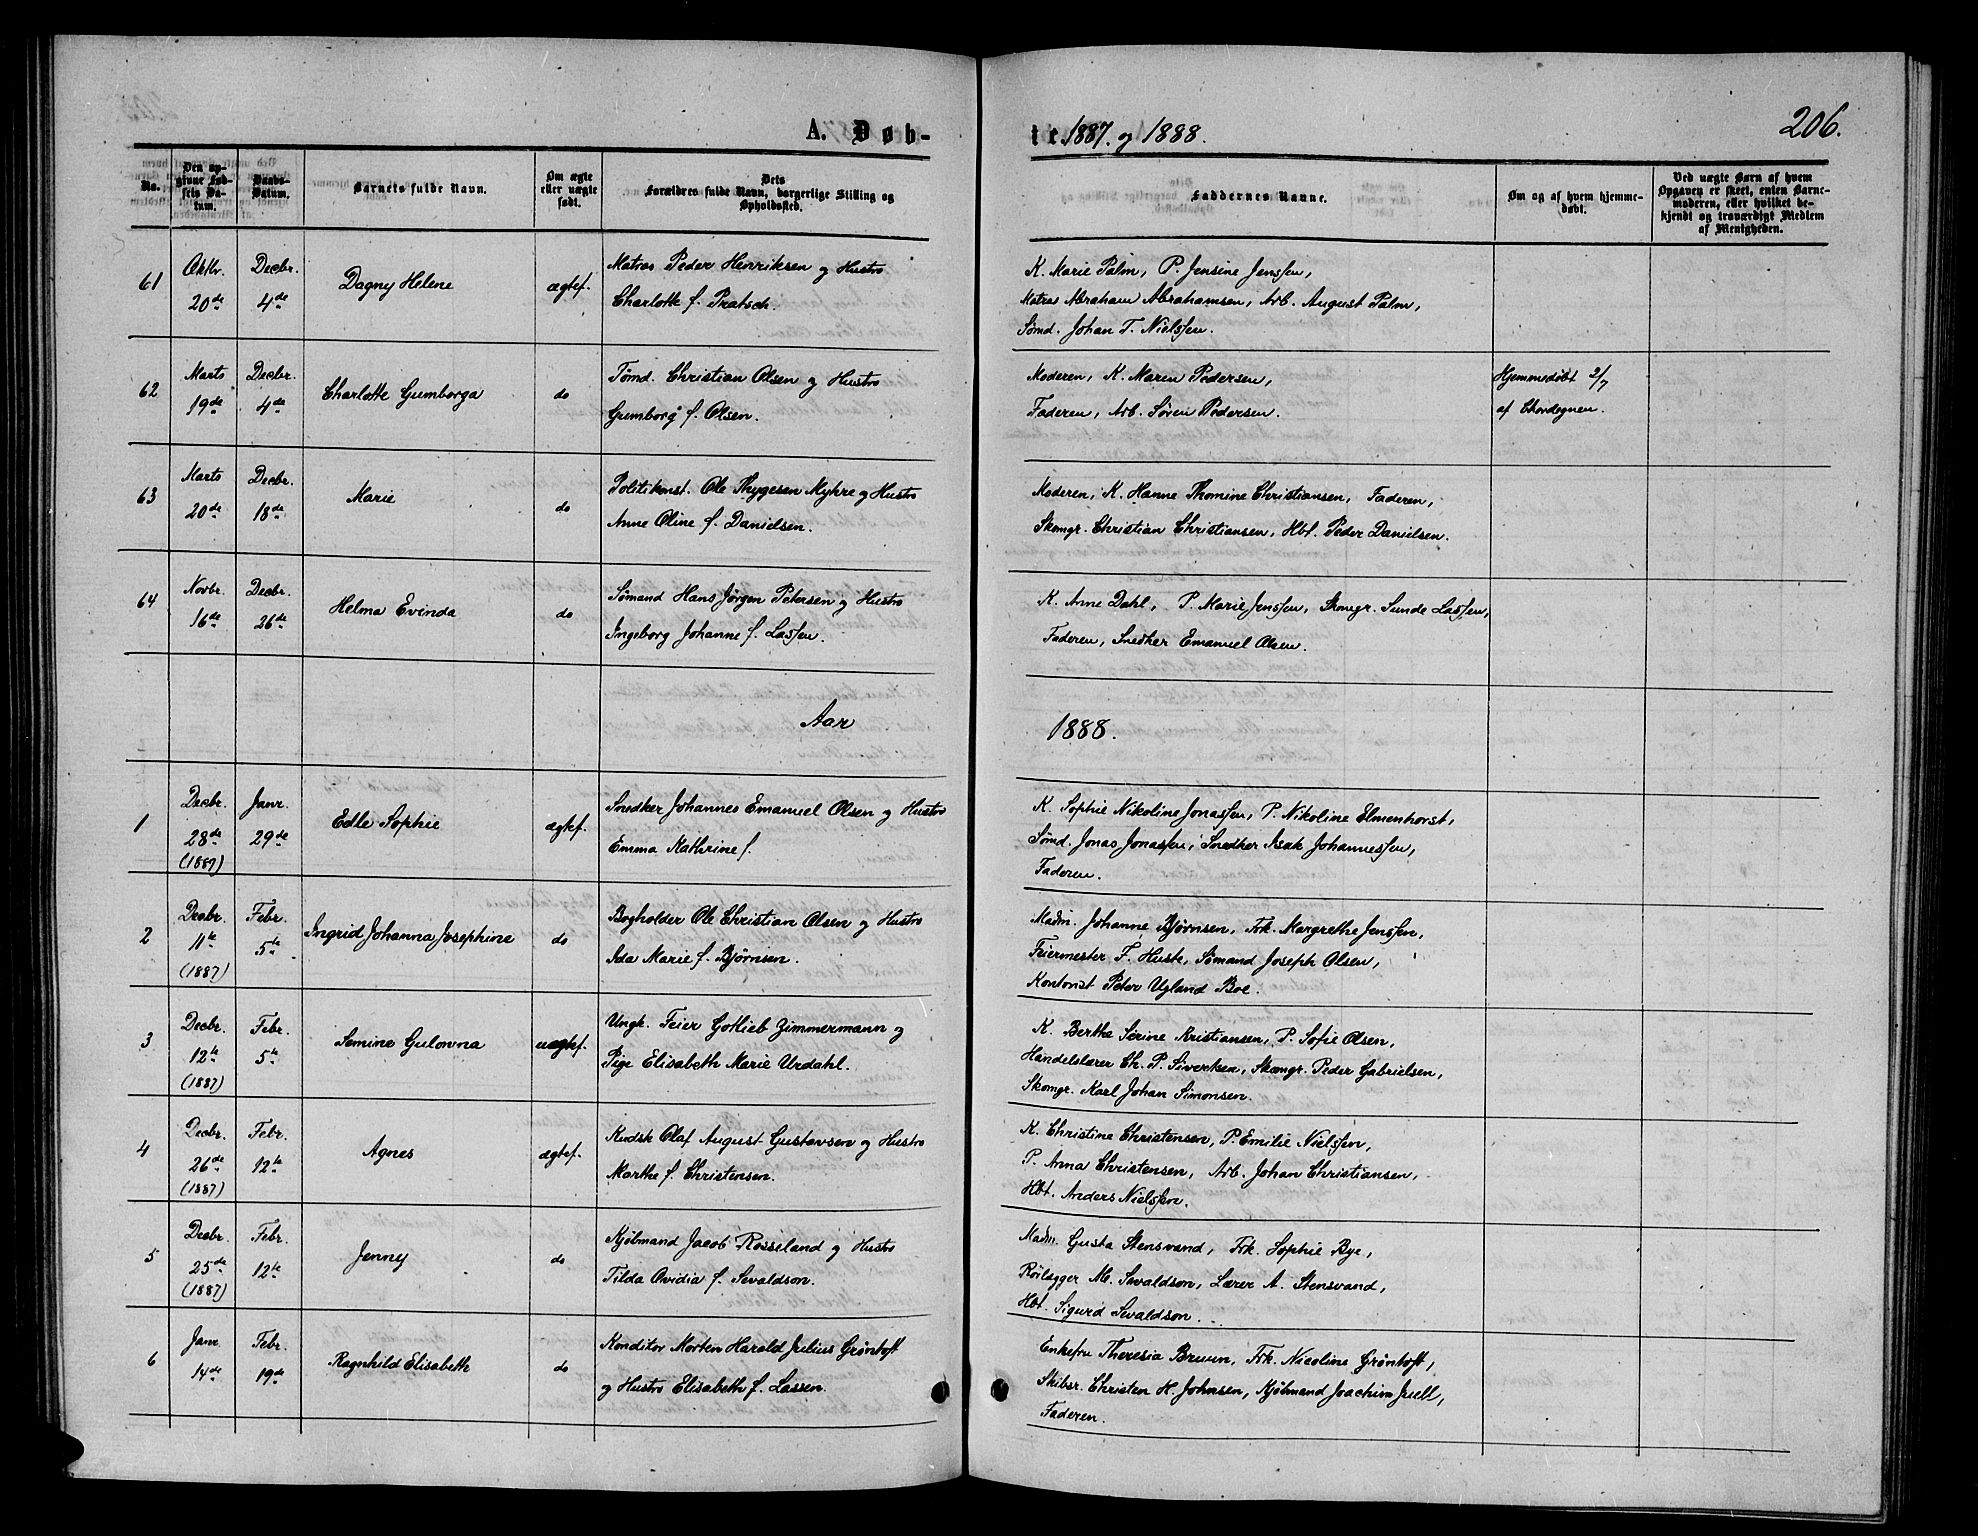 206.
A. Døb-
te. 1887. og 1888.
No.
Den op-
givne Fød-
sels Da-
tum.
Daabs-
Datum.
Barnets fulde Navn.
Om ægte
eller uægte
født.
Dets
Forældres fulde Navn, borgerlige Stilling og
Opholdssted.
Faddernes Navne.
Om og af hvem hjemme-
døbt.
Ved uægte Børn af hvem
Opgaven er skeet, enten Barne-
moderen, eller hvilket be-
kjendt og troværdigt Medlem
af Menigheden.
61
Oktbr.
20de
Decbr.
4de
Dagny Helene
ægtef.
Matros Peder Henriksen og Hustro
Charlotte f. Pratsch.
K. Marie Palm, P. Jensine Jenssen,
Matros Abraham Abrahamsen, Arb. August Palm,
Sømd. Johan T. Nielssen.
62
Marts
19de
Decbr.
4de
Charlotte Gumborga
do
Tømd. Christian Olsen og Hustro
Gumborg f. Olsen.
Moderen, K. Maren Pedersen,
Faderen, Arb. Søren Pedersen.
Hjemmedøbt 2/7
af Chordegnen.
63
Marts
20de
Decbr.
18de
Marie
do
Politikonst. Ole Thygesen Myhre og Hustro
Anne Oline f. Danielsen.
Moderen, K. Hanne Thomine Christiansen, Faderen,
Skomgr. Christian Christiansen, Hbt. Peder Danielsen.
64
Novbr.
16de
Decbr.
26de
Helma Evinda
do
Sømand Hans Jørgen Petersen og Hustro
Ingeborg Johanne f. Lassen.
K. Anne Dahl, P. Marie Jenssen, Skomgr. Sunde Lassen,
Faderen, Snedker Emanuel Olsen.
Aar
1888.
1
Decbr.
28de
(1887)
Janr.
29de
Edle Sophie
ægtef.
Snedker Johannes Emanuel Olsen og Hustro
Emma Kathrine f.
K. Sophie Nikoline Jonassen, P. Nikoline Elmenhorst,
Sømd. Jonas Jonassen, Snedker Isak Johannessen,
Faderen.
2
Decbr.
11te
(1887)
Febr.
5te
Ingrid Johanna Josephine
do
Bogholder Ole Christian Olsen og Hustro
Ida Marie f. Bjørnsen.
Madm. Johanne Bjørnsen, Frk. Margrethe Jenssen,
Feiermester F. Husk, Sømand Joseph Olsen,
Kontorist Peter Ugland Boe.
3
Decbr.
12te
(1887)
Febr.
5te
Semine Gulovna
uægtef.
Ungk. Feier Gotlieb Zimmermann og
Pige Elisabeth Marie Urdahl.
K. Berthe Serine Kristiansen, P. Sofie Olsen,
Handelslærer Ch. P. Sivertsen, Skomgr. Peder Gabrielsen,
Skomgr. Karl Johan Simonsen.
4
Decbr.
26de
(1887)
Febr.
12te
Agnes
ægtef.
Kudsk Olaf August Gustavsen og Hustro
Marthe f. Christensen.
K. Christine Christensen, P. Emilie Nielssen,
P. Anna Christensen, Arb. Johan Christiansen,
Hbt. Anders Nielssen.
5
Decbr.
25de
(1887)
Febr.
12te
Jenney
do
Kjøbmand Jacob Rosseland og Hustro
Tilda Ovidia f. Sevaldson.
Madm. Gusta Stensvand, Frk. Sophie Bye,
Reilægger M. Sevaldson, Lærer A. Stensvand,
Hbt. Sigurd Sevaldson.
6
Janr
14de
Febr.
19de
Ragnhild Elisabeth
do
Konditor Morten Harald Julius Grøntoft
og Hustro Elisabeth f. Lassen.
Enkefru Theresia Bruun, Frk. Nicoline Grøntoft,
Skibsr. Christen H. Johnsen, Kjøbmand Joachim Juell,
Faderen.